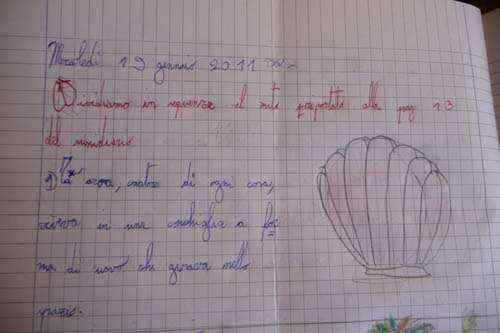 Mercoledì 19 gennaio 2011
Dividiamo in sequenze il mito riportato alla pag 13
del sussidiario
creatore di ogni cosa,
viveva in una conchiglia a for
ma di uovo che girava nello
spazio.